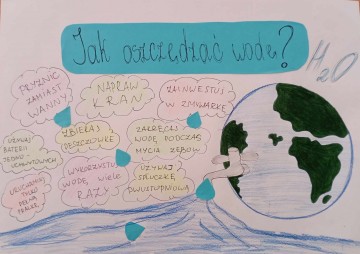 Jak oszczędzać wodę?
H2O
PRYSZNIC
ZAMIAST
WANNY
NAPRAW
KRAN
ZAINWESTUJ
W ZMYWARKĘ
UŻYWAJ
BATERII
JEDNO-
UCHWYTOWYCH
ZBIERAJ
DESZCZÓWKĘ
ZAKRĘCAJ
WODĘ PODCZAS
MYCIA ZĘBÓW
URUCHAMIAJ
TYLKO
PEŁNĄ
PRALKĘ
WYKORZYSTUJ
WODĘ WIELE
RAZY
UŻYWAJ
SPŁUCZKĘ
DWUSTOPNIOWĄ